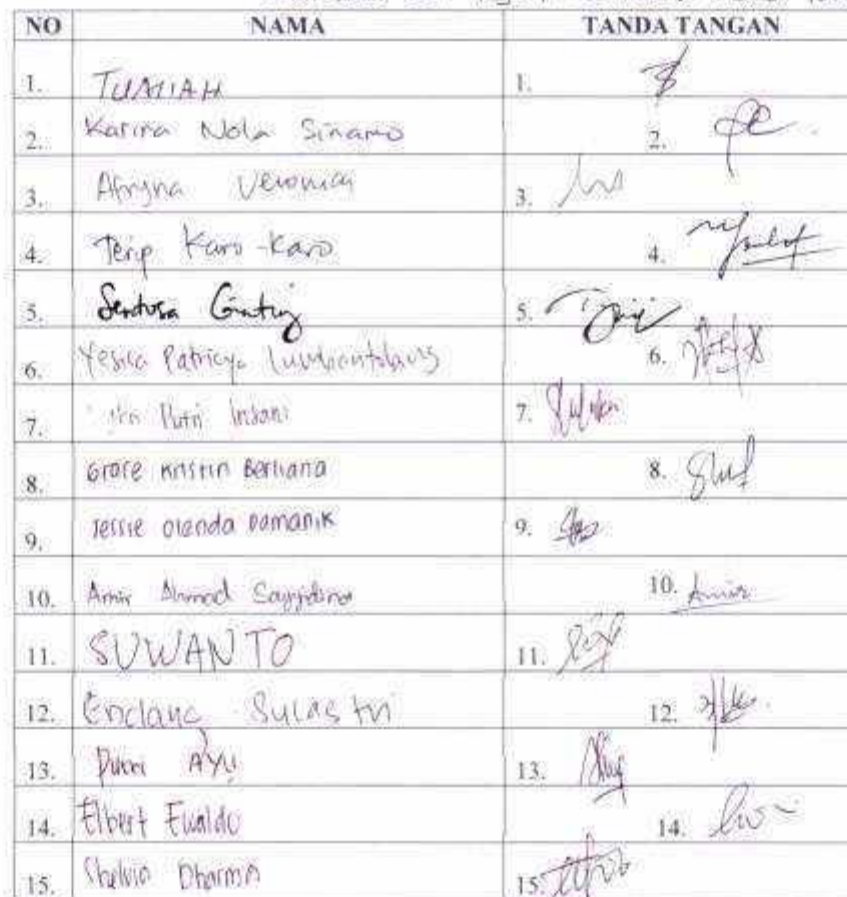 NO NAMA TANDA TANGAN
1. TUMIAH 1.
2. Karina Nola Sinamo 2.
3. Afryna Veronica 3.
4. Terip Karo-Karo 4.
5. Sentosa Ginting 5.
6. Yesica Patricya 6.
7. Putri Indani 7.
8. Grace Kristin Berliana 8.
9. Jessie Olenda Damanik 9.
10. Amir Ahmad 10. Amir
11. SUWANTO 11.
12. Endang Sulastri 12.
13. Putri AYU 13.
14. Elbert Evaldo 14.
15. Shelvia Dharma 15.